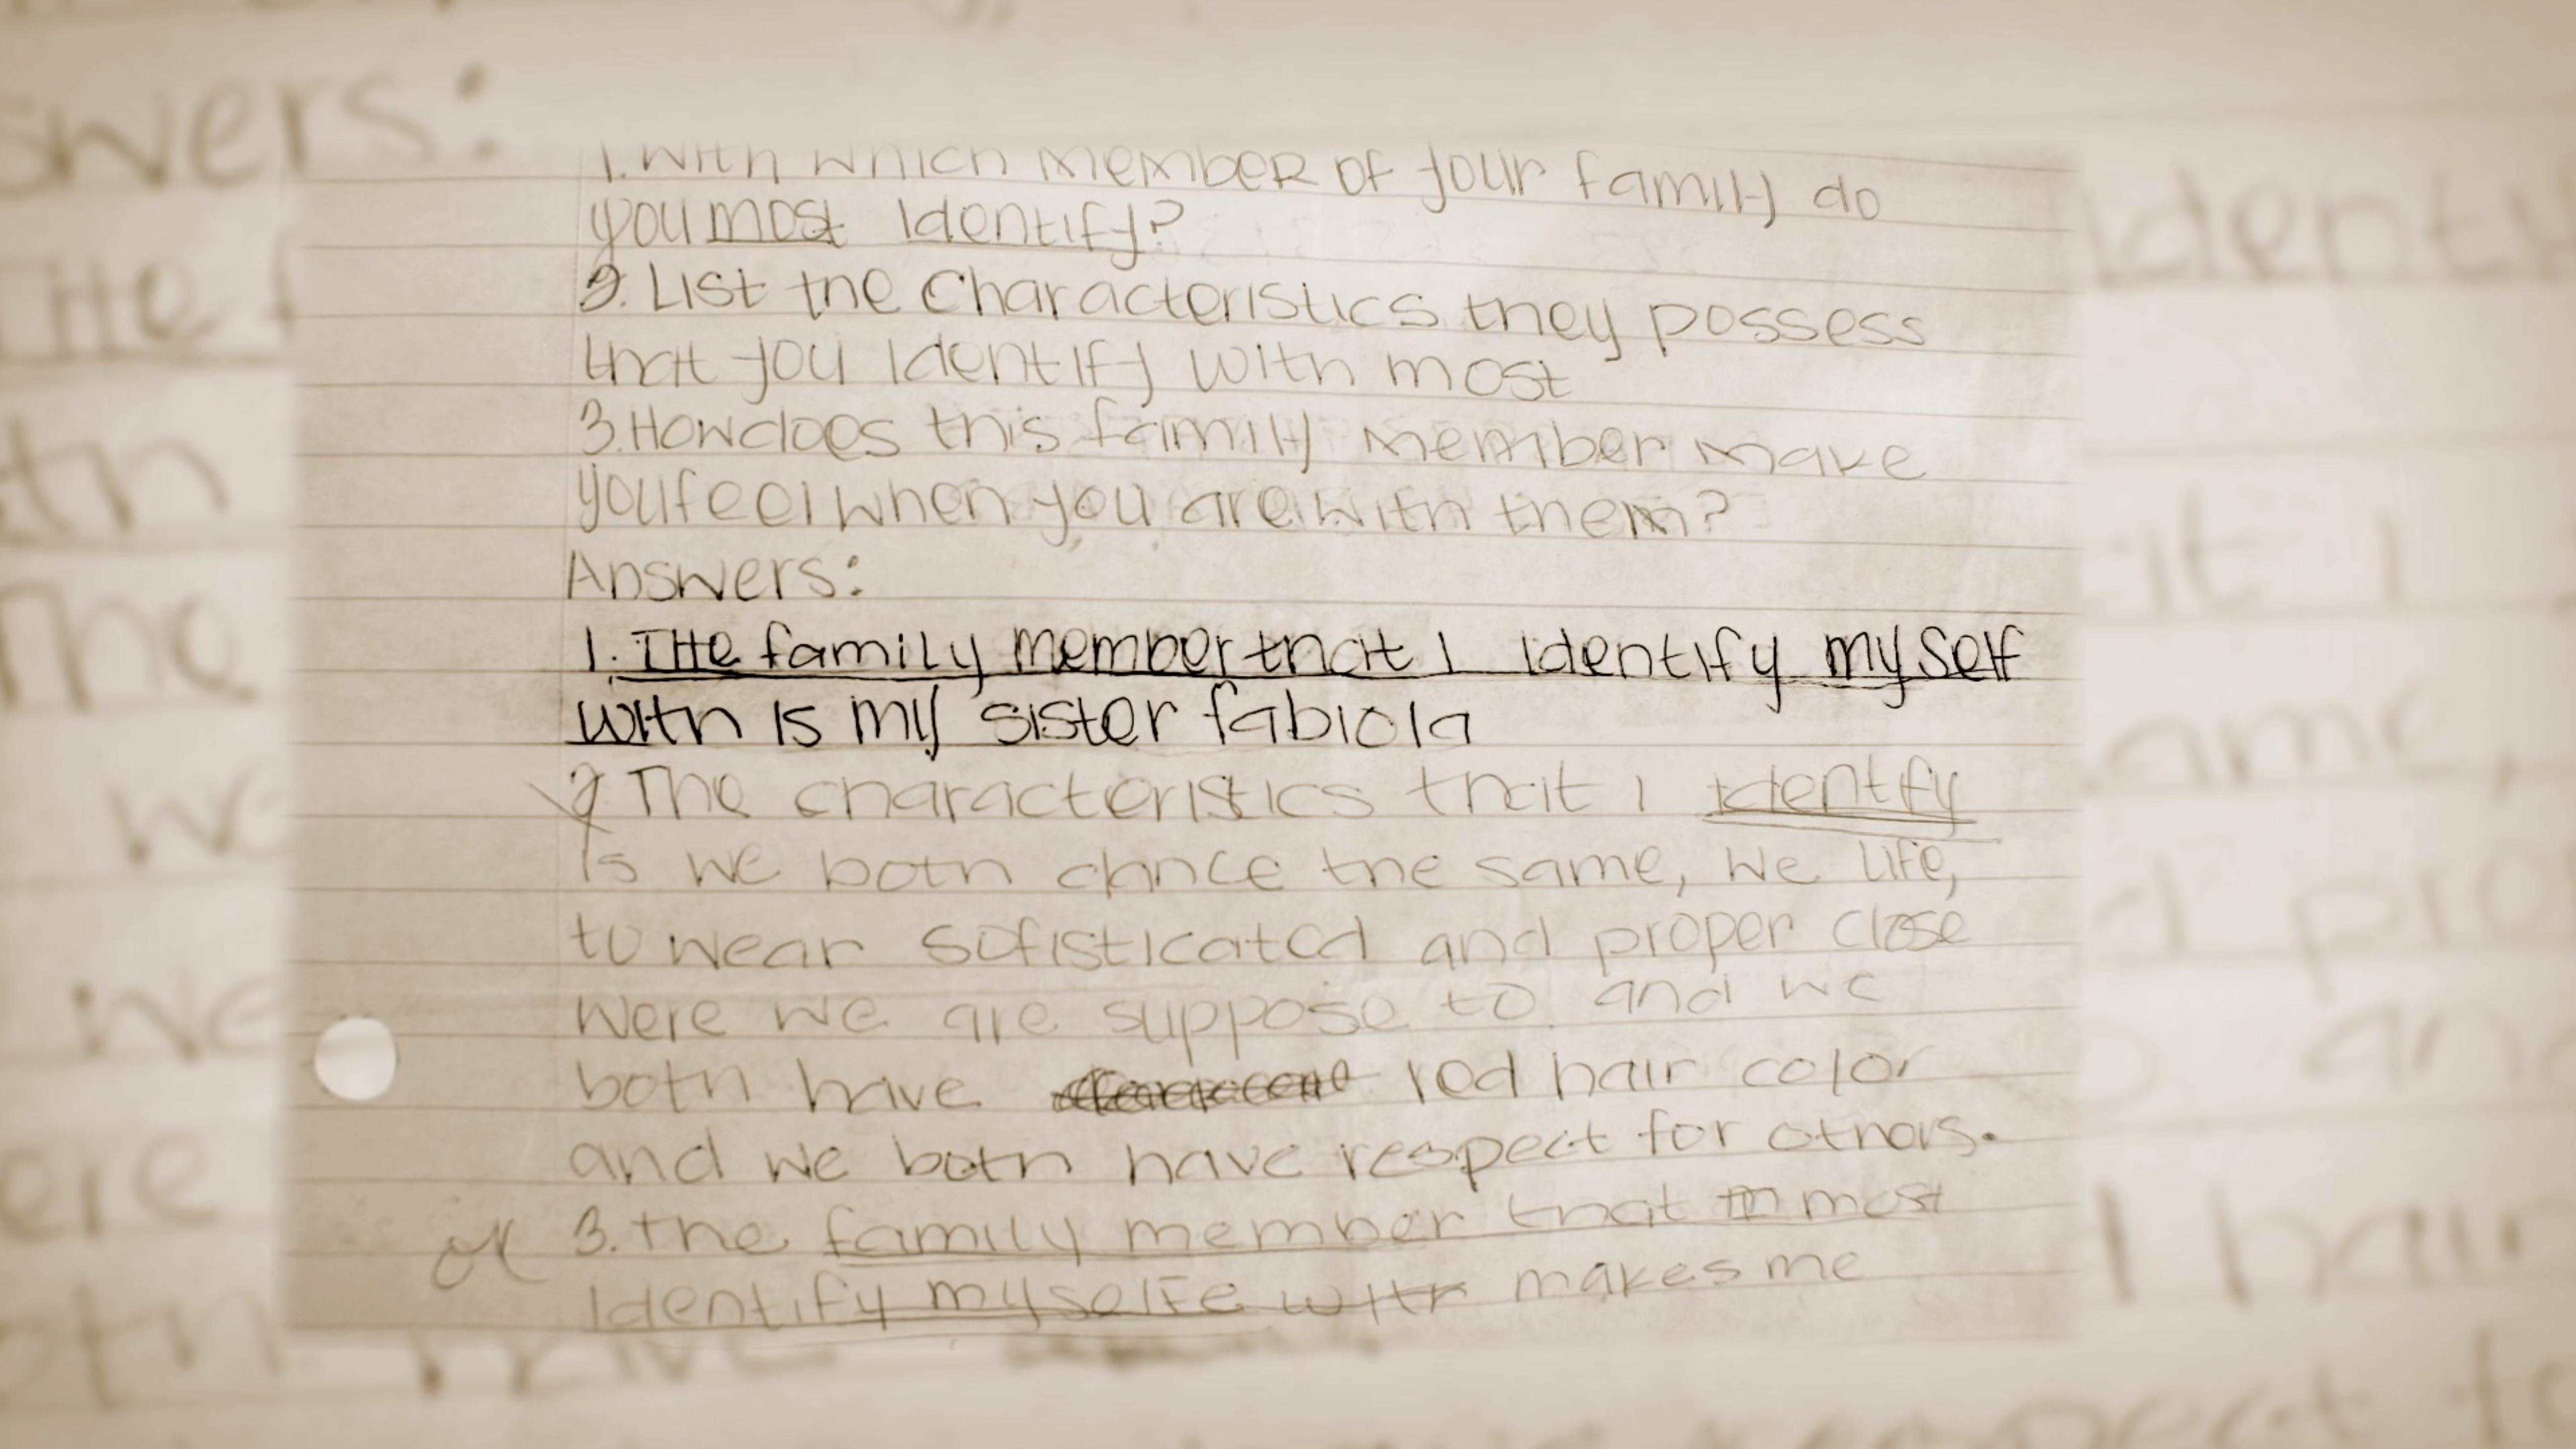 1. With which member of your family do
you most identify?
2. List the characteristics they possess
that you identify with most
3. How does this family member make
you feel when you are with them?
Answers:
1. THe family member that I identify myself
with is my sister fabiola
2 The characteristics that I identify
is we both dance the same, we life,
to wear sofisticated and proper close
were we are suppose to and we
both have red hair color
and we both have respect for others.
3. the family member that m most
identify myselfe with makes me